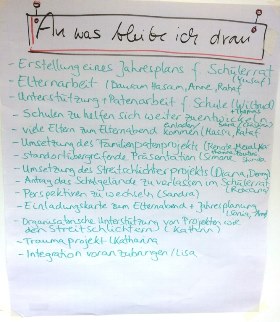 An was bleibe ich dran
- Erstellung eines Jahresplans f. Schülerrat
- Elternarbeit (Dawran Hasam, Anne, Rahaf
- Unterstützung + Patenarbeit f. Schule
- Schulen zu helfen sich weiter zu entwickeln
- viele Eltern zum Elternabend kommen (Hassu, Rahaf
- Umsetzung des Familienpatenprojekts
- standortübergreifende Präsentation (Simone
- Umsetzung des Streitschlichterprojekts (Diana,
- Antrag das Schulgelände zu verlassen im Schülerrat
- Perspektiven zu wechseln (Sandra)
- Einladungskarte zum Elternabend + Jahresplanung
- Organisatorische Unterstützung von Projekten wie
den Streitschlichtern (Kathrin)
- Traumaprojekt (Katharina
- Integration voran zu bringen / Lisa